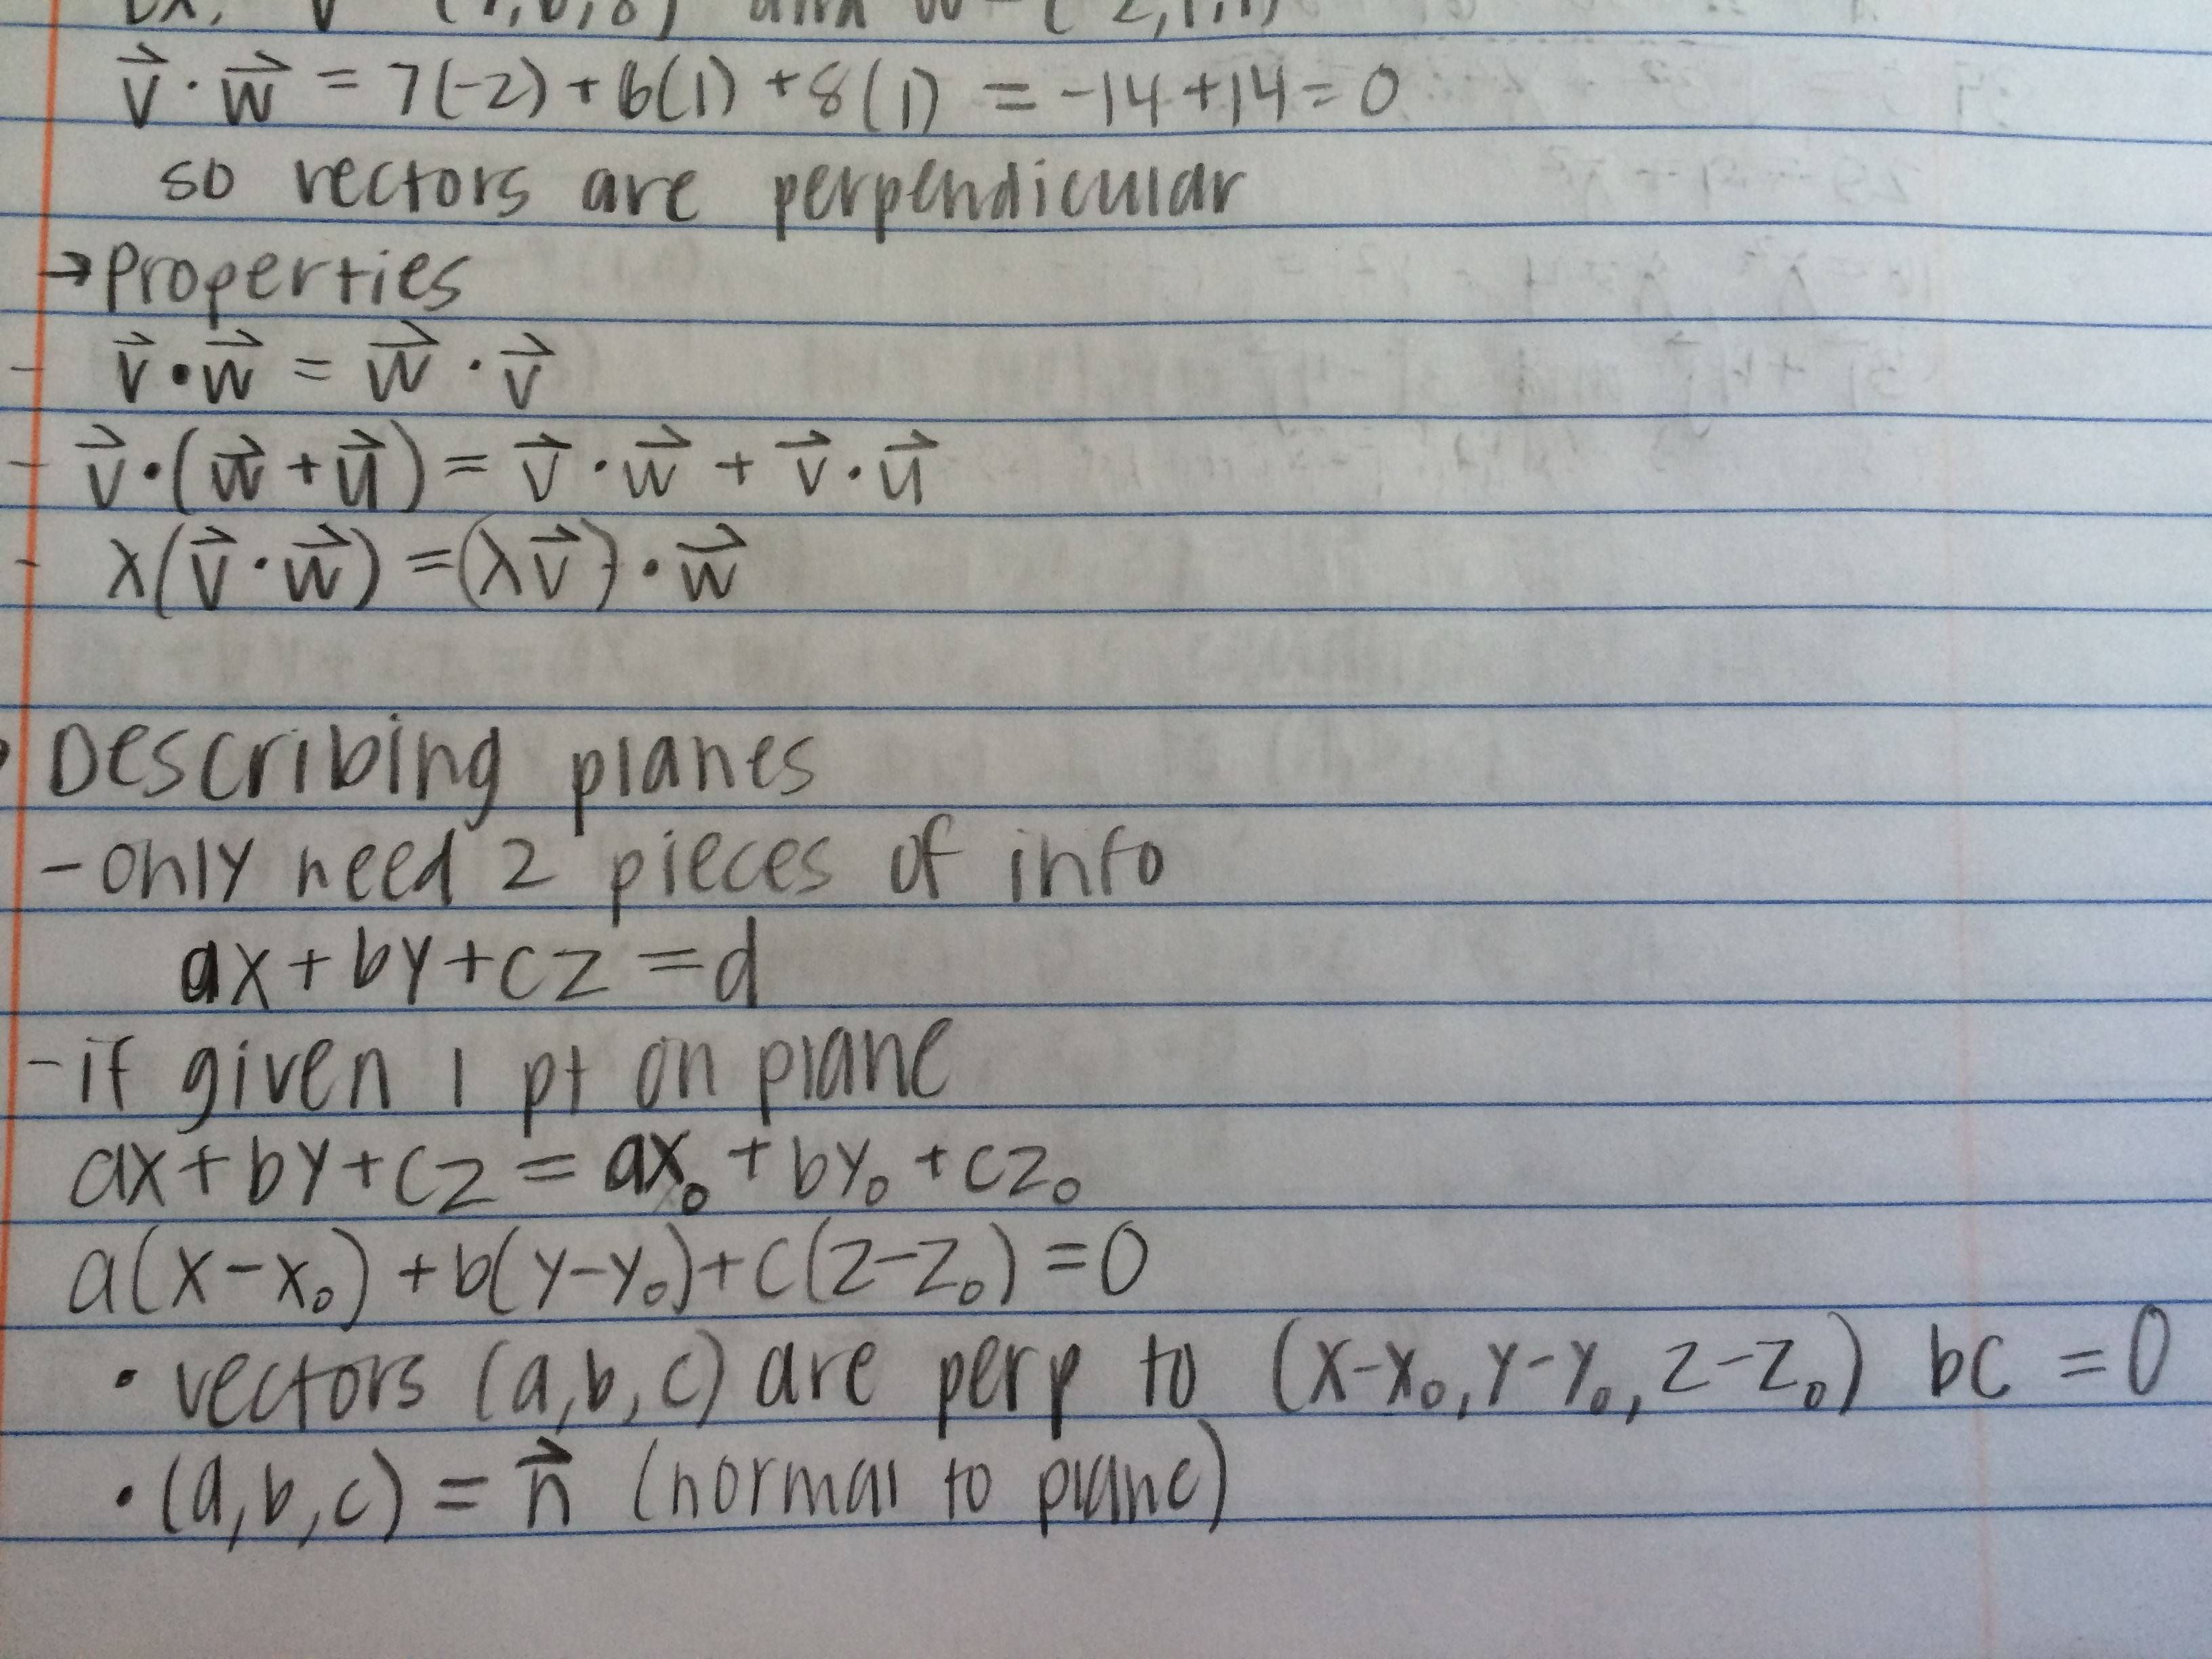 Ex: v (7,6,8) and w = (-2,1,1)
v⃗ · w⃗ = 7(-2) + 6(1) + 8(1) = -14 + 14 = 0
so vectors are perpendicular
→ Properties
- v⃗ · w⃗ = w⃗ · v⃗
- v⃗ · (w⃗ + u⃗) = v⃗ · w⃗ + v⃗ · u⃗
- λ(v⃗ · w⃗) = (λv⃗) · w⃗
Describing planes
- only need 2 pieces of info
ax + by + cz = d
- if given 1 pt on plane
ax + by + cz = ax₀ + by₀ + cz₀
a(x-x₀) + b(y-y₀) + c(z-z₀) = 0
• vectors (a,b,c) are perp to (x-x₀, y-y₀, z-z₀) bc = 0
• (a,b,c) = n⃗ (normal to plane)